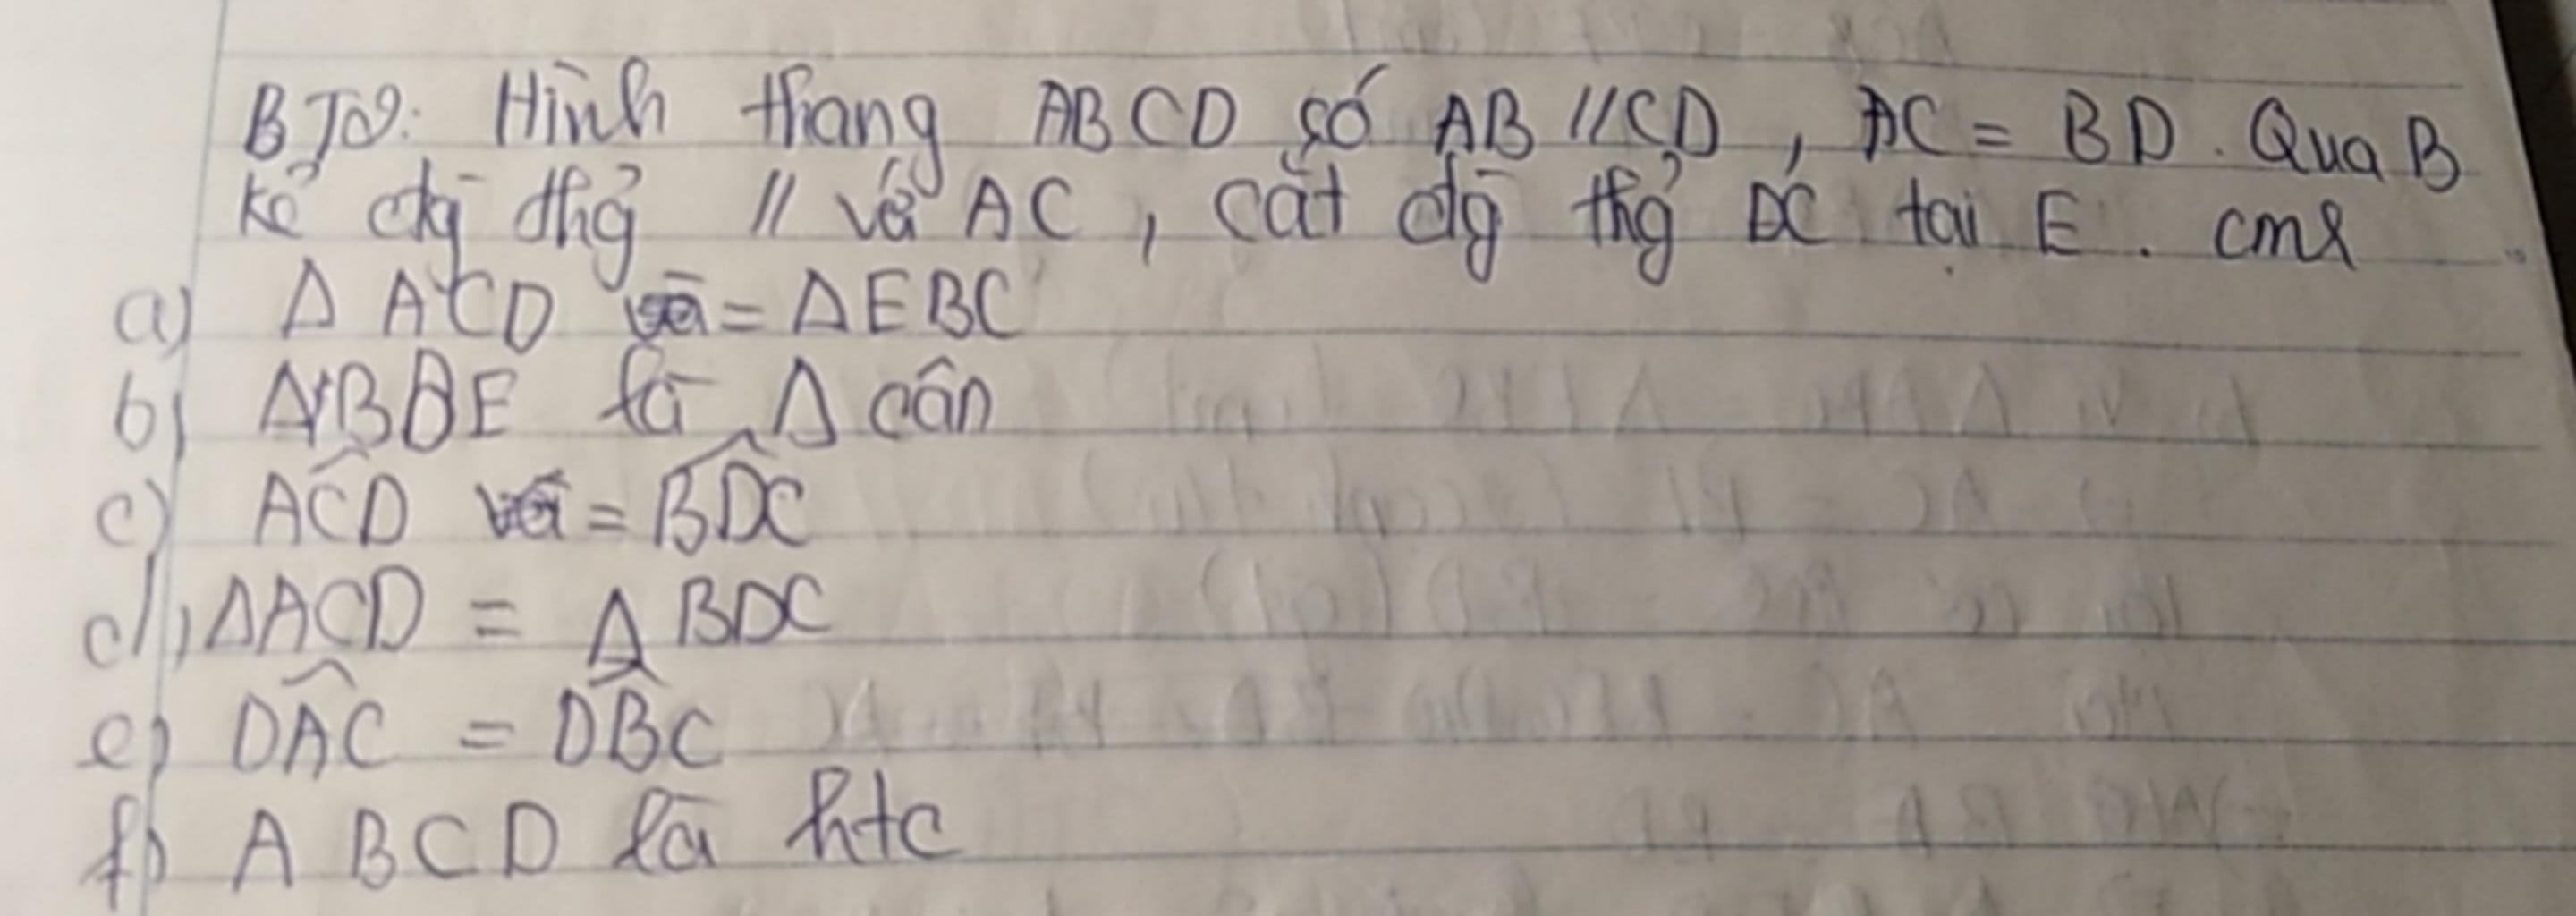 BT9: Hình thang ABCD có AB //CD, AC = BD. Qua B
kẻ đg thg̉ // với AC, cắt đg thg̉ DC tại E. cmr
a) Δ ACD = ΔEBC
b) ΔBDE là Δ cân
c) ACD̂ = BDĈ
d) ΔACD = Δ BDC
e) DAĈ = DBĈ
f) A BCD là htc